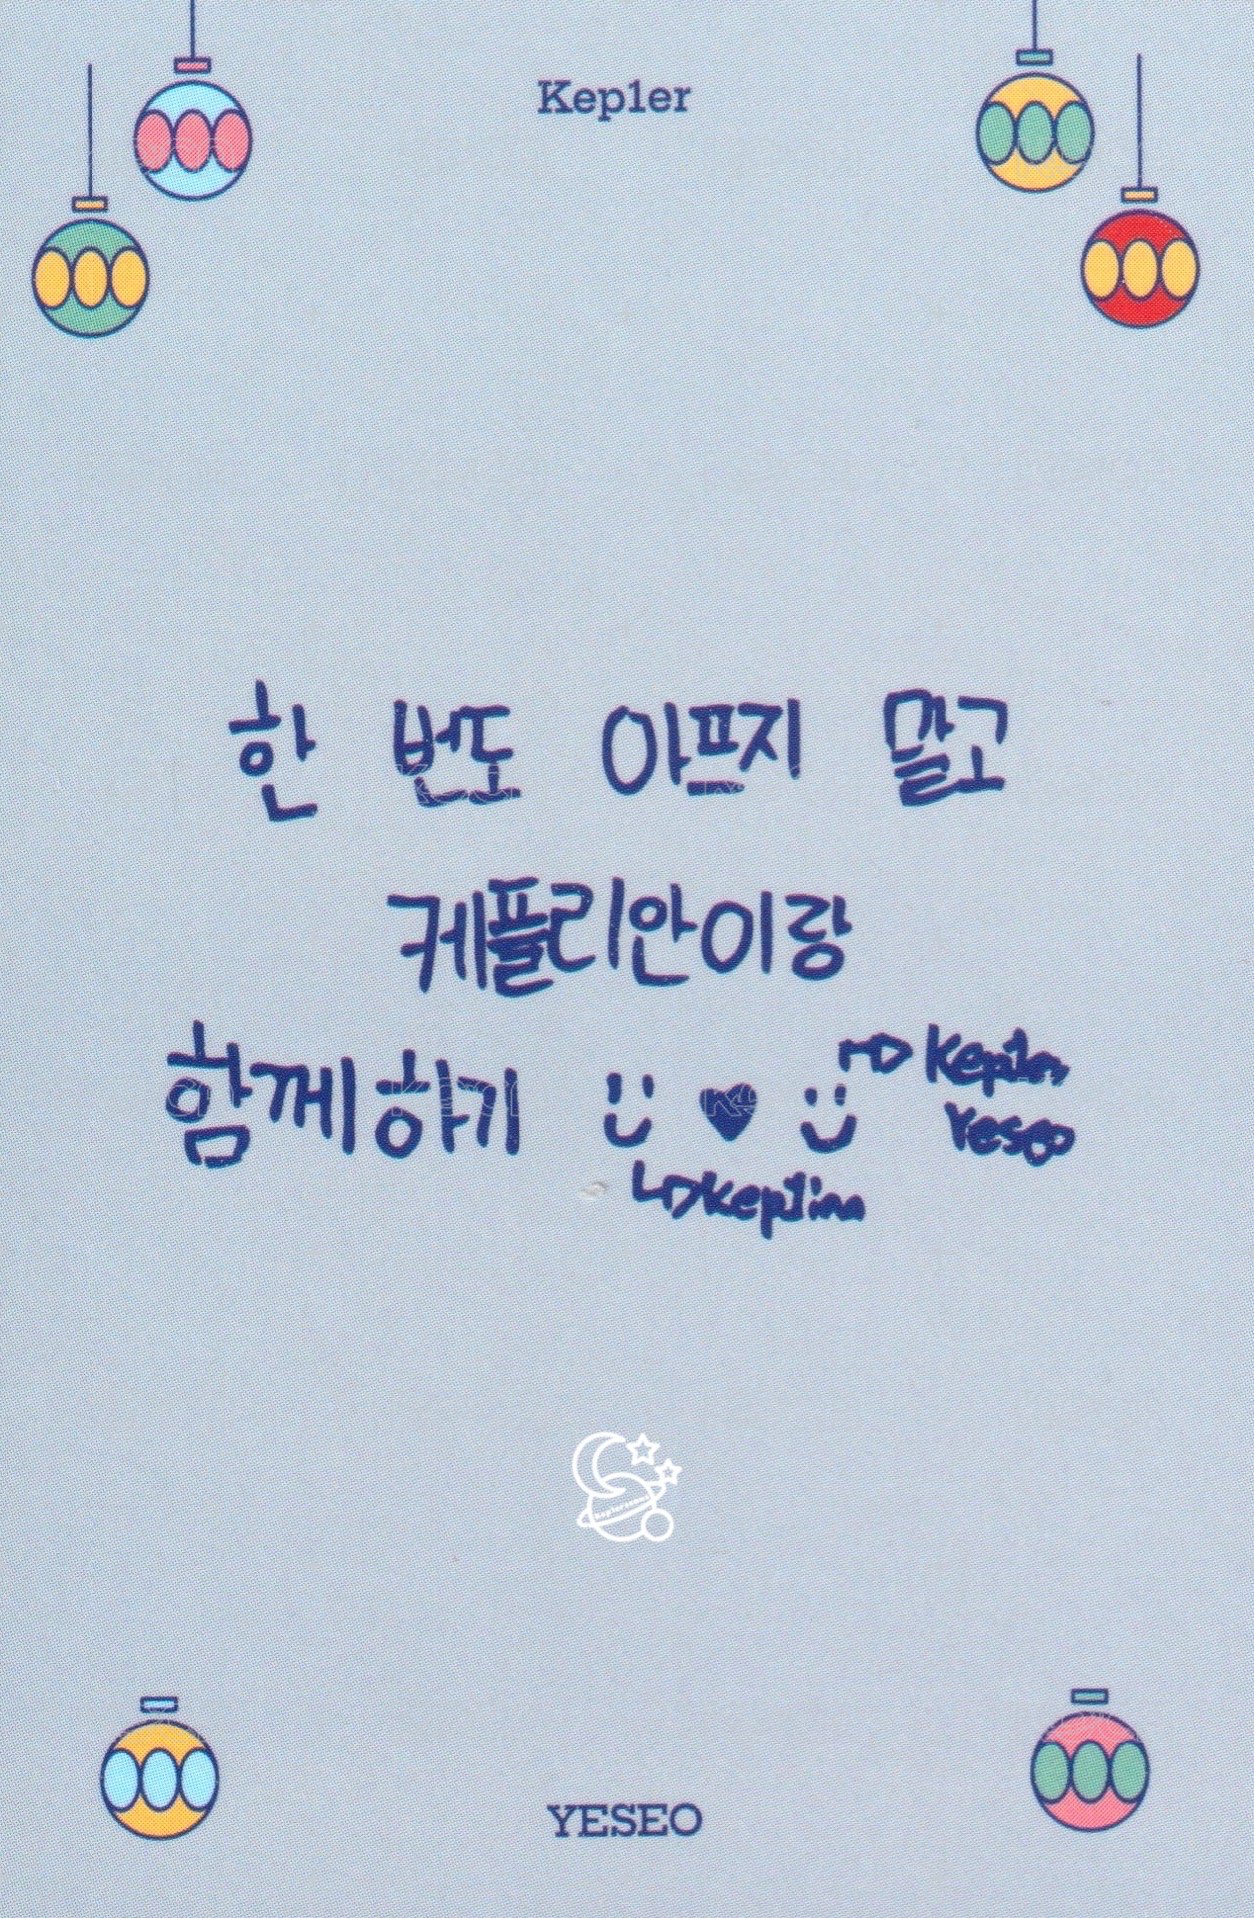 Kep1er
한 번도 아프지 말고
케플리안이랑
함께하기
Kep1er
Yeseo
kep1ian
YESEO